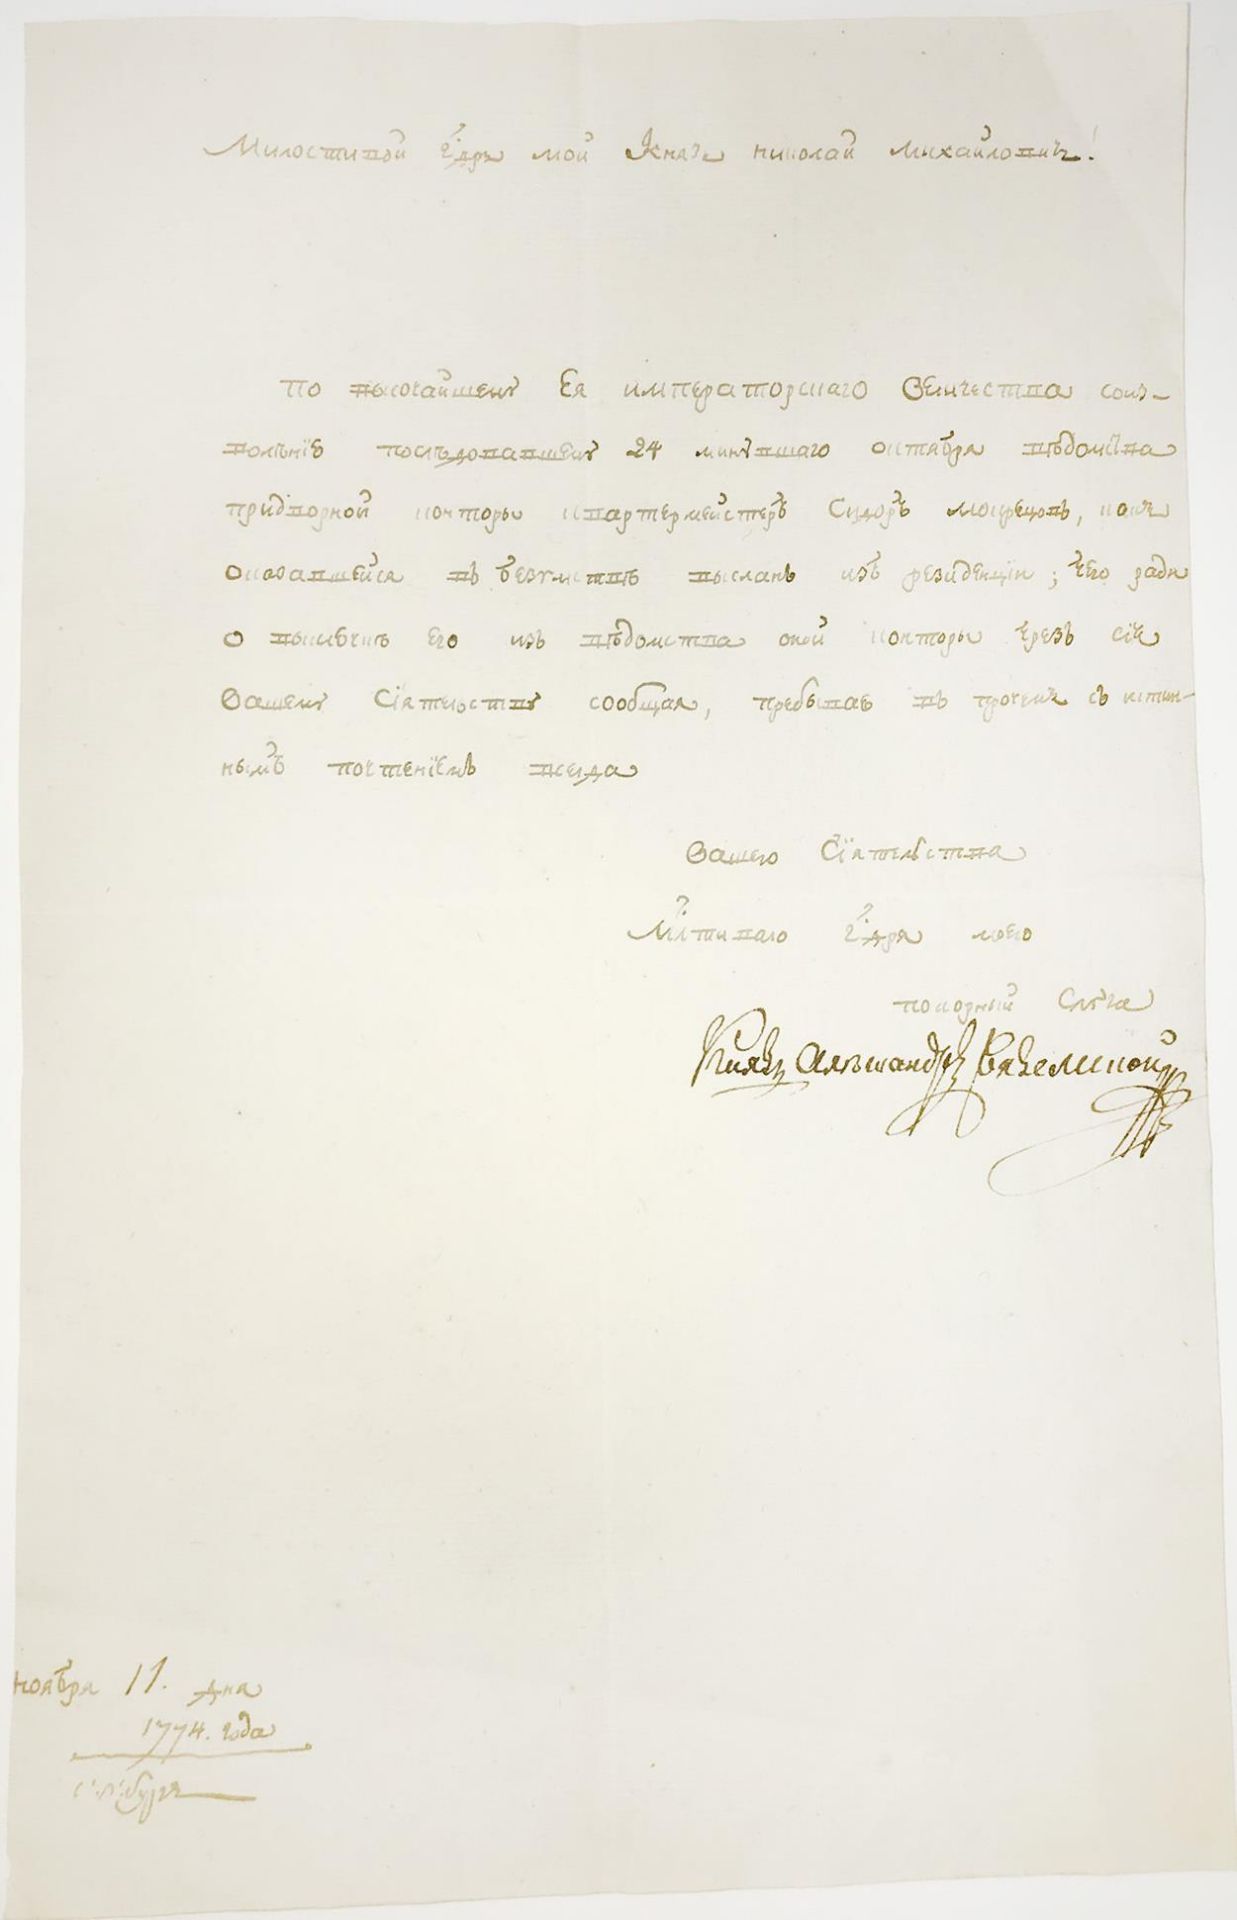 Милостивой Гдрь мой Князь Николай Михайловичь!
По высочайшему Ея императорскаго Величества соиз-
волѣнїю последовавшему 24 минувшаго октября вѣдомства
придворной конторы квартермейстеръ Сидоръ, какъ
оказавшейся въ безумствѣ высланъ изъ резиденцїи; чего ради
о выключкѣ его изъ вѣдомства оной конторы чрезъ сїе
Вашему Сїятельству сообщая, пребываю въ протчемъ съ истин-
нымъ почтенїемъ всегда
Вашего Сїятельства
Млстиваго Гдря моего
покорный слуга
Князь Александръ Вяземской
ноября 11. дня
1774. года